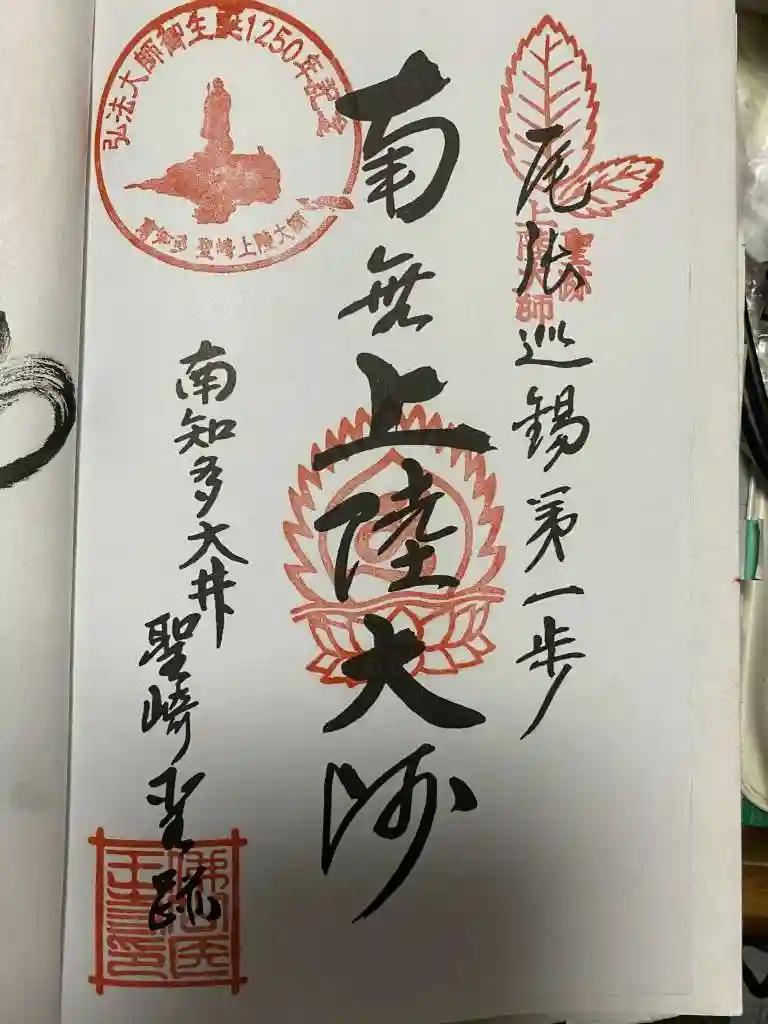 尾張巡錫第一歩
上陸大師
南無上陸大師
弘法大師御生誕1250年記念
南知多 聖崎上陸大師
南知多大井
聖崎聖蹟